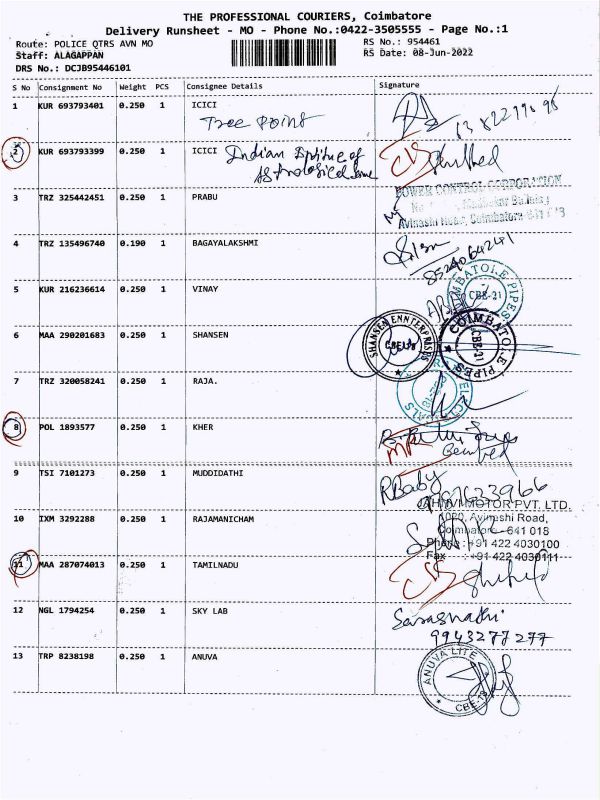 THE PROFESSIONAL COURIERS, Coimbatore
Delivery Runsheet - MO - Phone No.:0422-3505555 - Page No.:1
Route: POLICE QTRS AVN MO
RS No.: 954461
Staff: ALAGAPPAN
RS Date: 08-Jun-2022
DRS No.: DCJB95446101
S No Consignment No Weight PCS Consignee Details Signature
1 KUR 693793401 0.250 1 ICICI
Tree Point
2 KUR 693793399 0.250 1 ICICI Indian of
POWER CONTROL CORPORATION
3 TRZ 325442451 0.250 1 PRABU
Avinashi Road, Coimbatore
4 TRZ 135496740 0.190 1 BAGAYALAKSHMI
8524064241
5 KUR 216236614 0.250 1 VINAY
COIMBATOLE PIPES
CBE-31
6 MAA 290201683 0.250 1 SHANSEN
SHANSEN ENNTERPRISES
COIMBATOLE PIPES
CBE-31
7 TRZ 320058241 0.250 1 RAJA.
8 POL 1893577 0.250 1 KHER
9 TSI 7101273 0.250 1 MUDDIDATHI
R Baby
MOTOR PVT. LTD.
10 IXM 3292288 0.250 1 RAJAMANICHAM
Avinashi Road,
Coimbatore - 641 018
Phone : +91 422 4030100
Fax : +91 422 4030111
11 MAA 287074013 0.250 1 TAMILNADU
12 NGL 1794254 0.250 1 SKY LAB
9943277277
13 TRP 8238198 0.250 1 ANUVA
ANUVA LITE
CBE-18